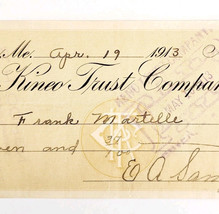 Me. Apr. 19 1913
Kineo Trust Compan
Frank Martelle
en and
E A Sam